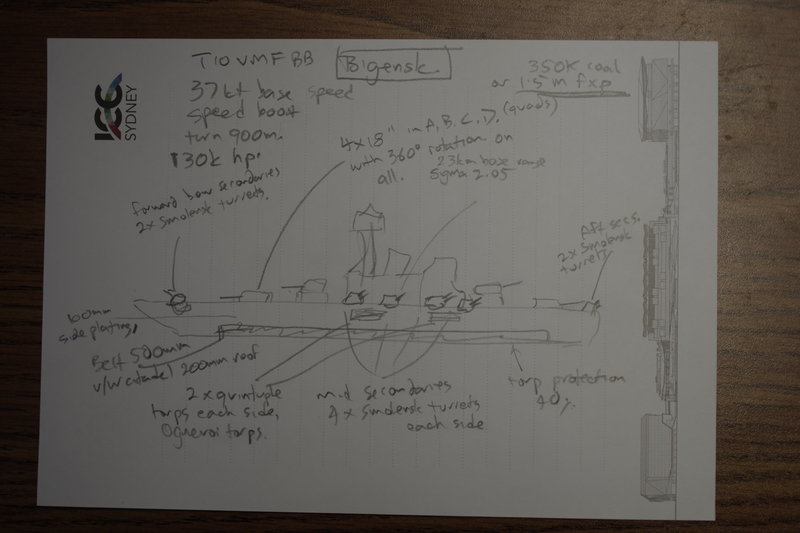 ICC
SYDNEY
T10 VMF BB
Bigensk
37kt base speed
speed boost
turn 900m.
130k hp.
350K coal
or 1.5m fxp
4x18" in A, B, C, D. (quads)
with 360° rotation on
all.
23km base range
Sigma 2.05
forward bow secondaries
2x Smolensk turrets.
Aft secs.
2x Smolensk
turrets
100mm
side plating,
Belt 500mm
u/w citadel 200mm roof
2 x quintuple
torps each side,
Ognevoi torps.
mid secondaries
4x Smolensk turrets
each side
torp protection
40%